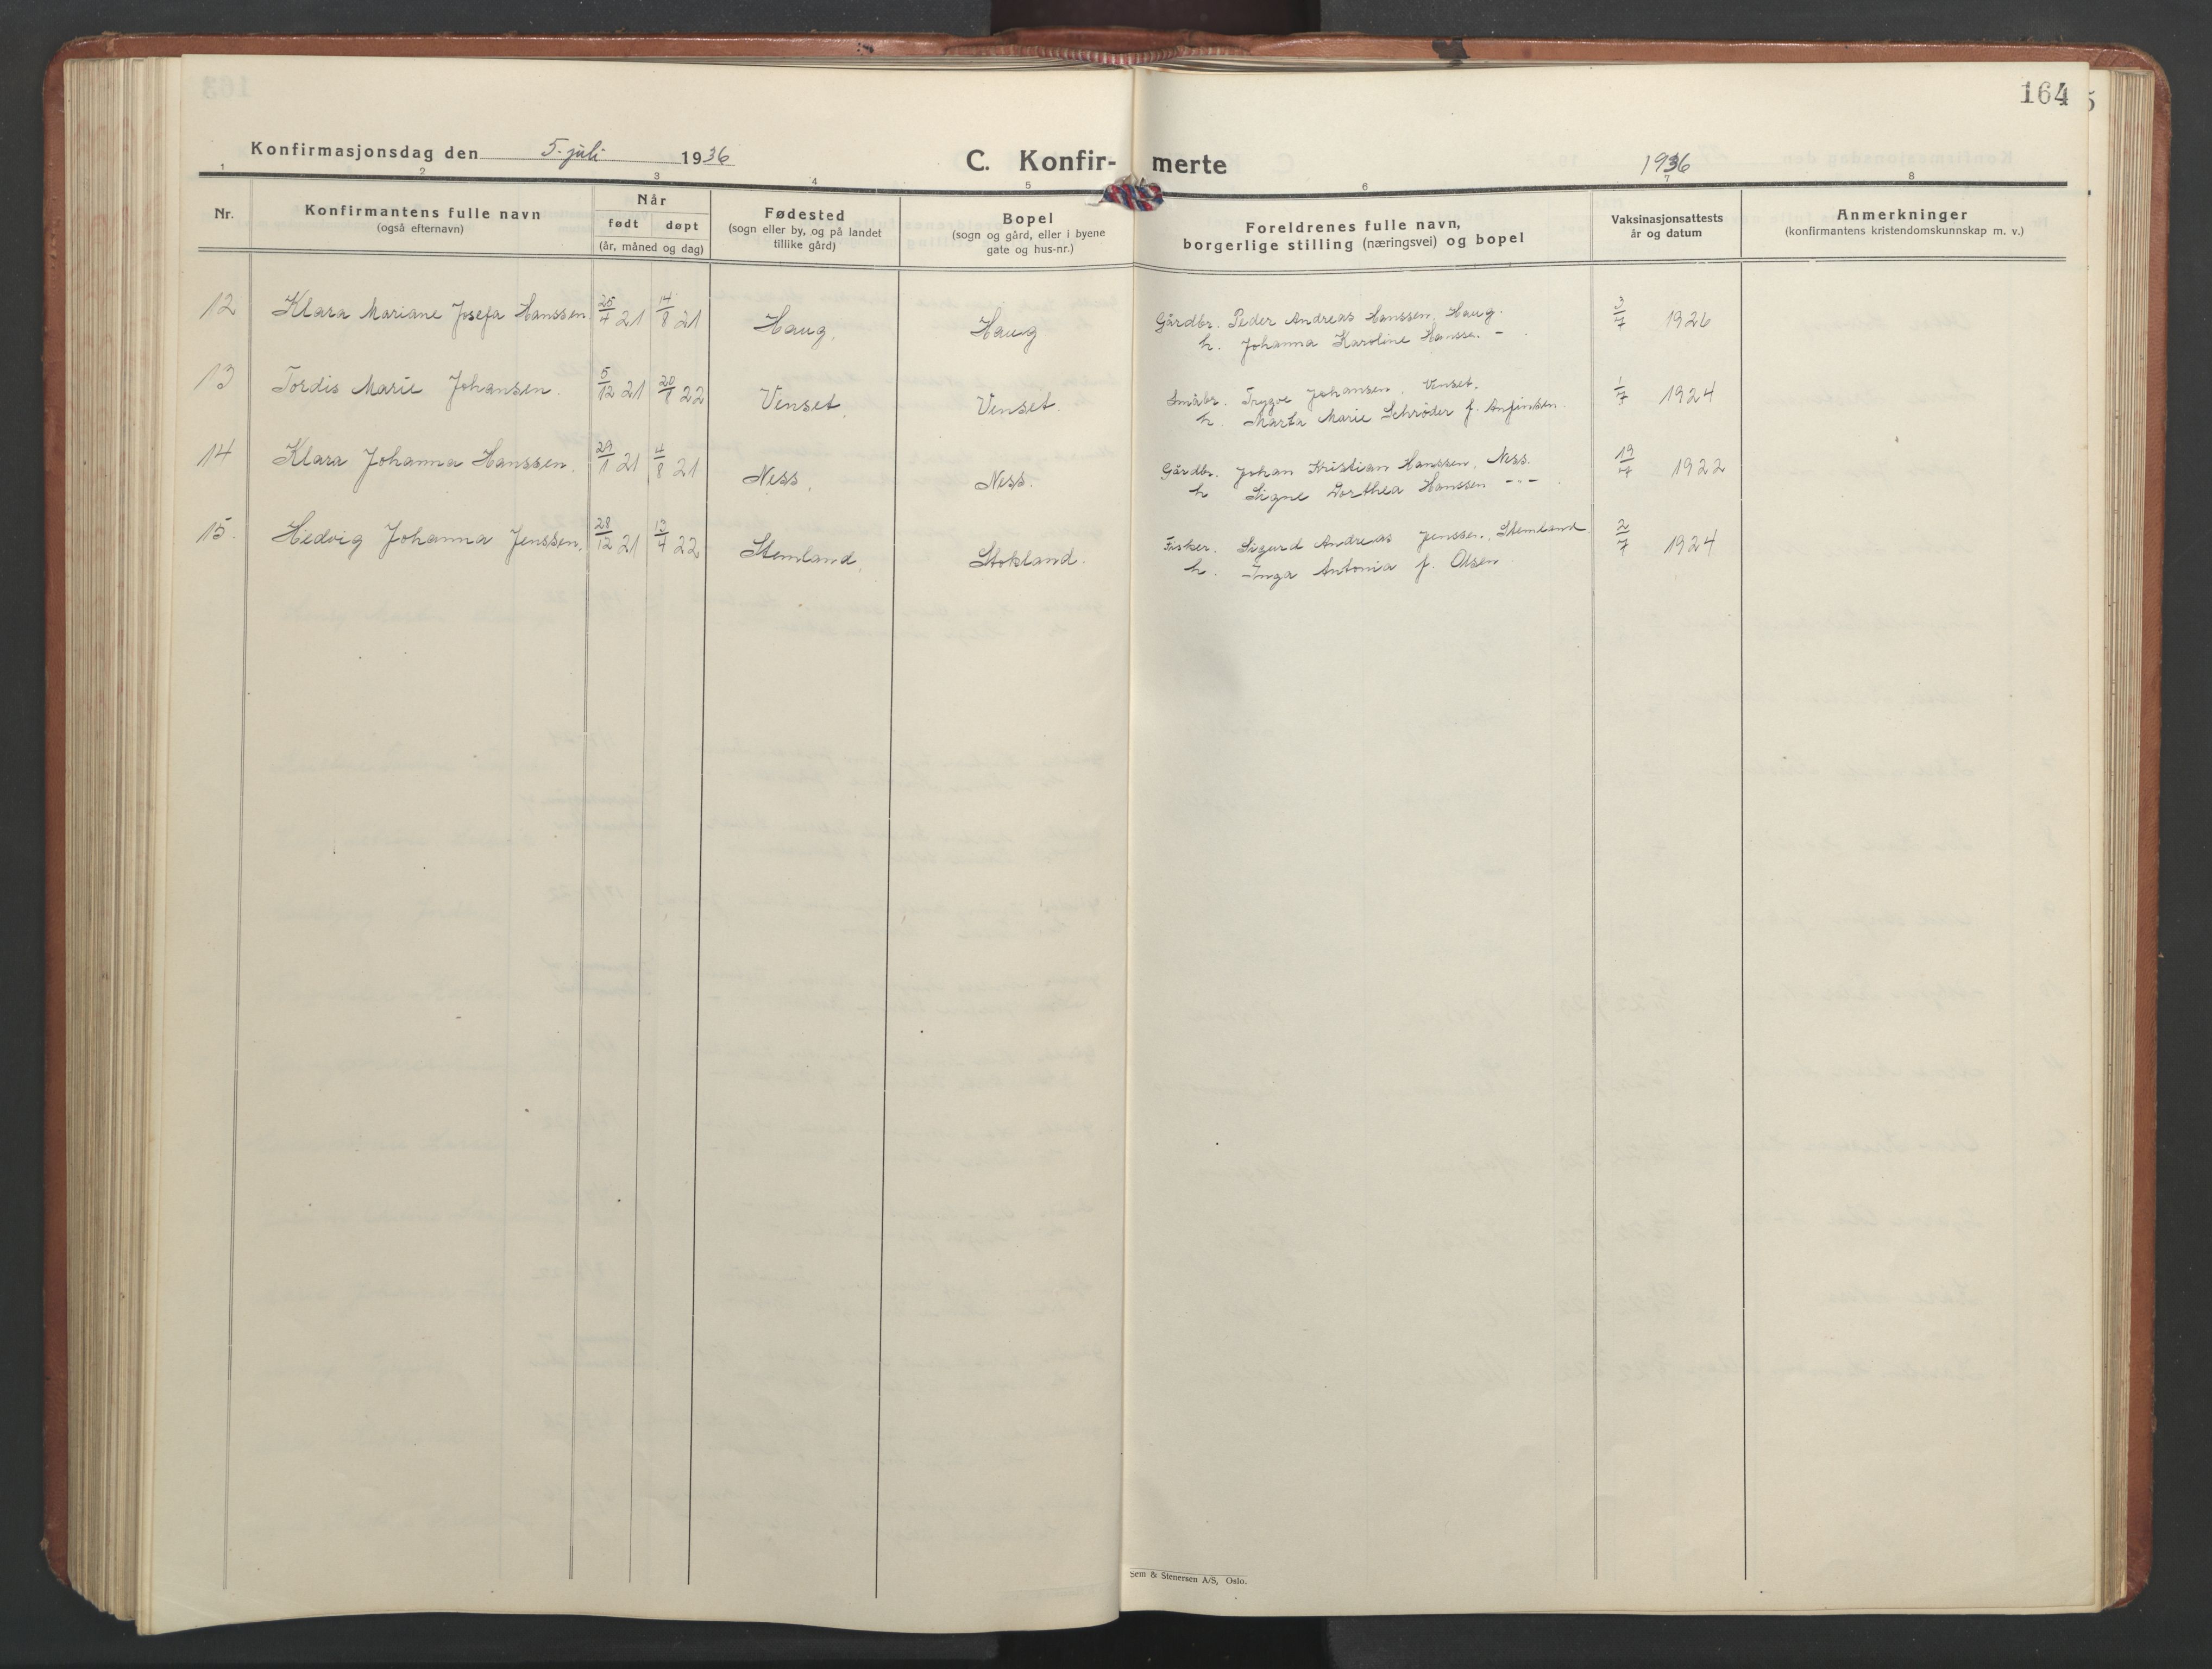 164
Konfirmasjonsdag den 5. juli 1936
C. Konfir- merte
1936
1 2 3 4 5 6 7 8
Nr.
Konfirmantens fulle navn
(også efternavn)
Når
født døpt
(år, måned og dag)
Fødested
(sogn eller by, og på landet
tillike gård)
Bopel
(sogn og gård, eller i byene
gate og hus-nr.)
Foreldrenes fulle navn,
borgerlige stilling (næringsvei) og bopel
Vaksinasjonsattests
år og datum
Anmerkninger
(konfirmantens kristendomskunnskap m. v.)
12 Klara Mariane Josefa Hanssen 25/4 21 14/8 21 Haug, Haug Gårdbr. Peder Andreas Hanssen, Haug. 3/7 1926
h. Johanna Karoline Hansse. -
13 Tordis Marie Johansen. 5/12 21 20/8 22 Venset, Venset. Småbr. Trygve Johansen, Venset. 1/7 1924
h. Marta Marie Schrøder f. Anfinsen.
14 Klara Johanna Hanssen. 29/1 21 4/8 21 Ness, Ness. Gårdbr. Johan Kristian Hanssen, Ness. 19/7 1922
h Signe Dorthea Hanssen - - -
15. Hedvig Johanna Jenssen, 28/12 21 17/4 22 Stemland, Stokland. Fisker. Sigurd Andreas Jenssen, Stemland. 2/7 1924
h. Inga Antonia f. Olsen
Sem & Stenersen A/S, Oslo.